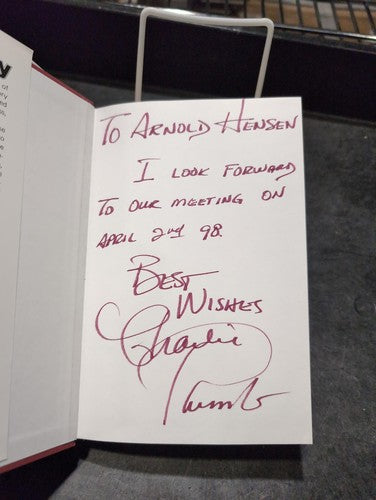 To Arnold Hensen
I look forward
to our meeting on
April 2nd 98.
Best
Wishes
Charlie